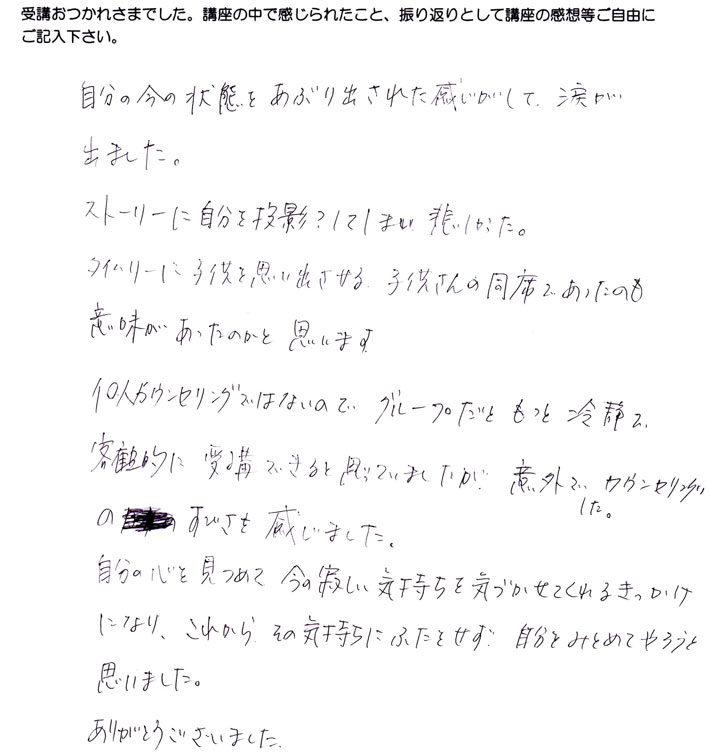 受講おつかれさまでした。講座の中で感じられたこと、振り返りとして講座の感想等ご自由に
ご記入下さい。
自分の今の状態をあぶり出された感じがして、涙が
出ました。
ストーリーに自分を投影?してしまい悲しかった。
タイムリーに子供を思い出させる、子供さんの同席であったのも
意味があったのかと思います
個人カウンセリングではないので、グループだともっと冷静で、
客観的に受講できると思っていましたが、意外で、カウンセリング
した。
のすごさを感じました。
自分の心を見つめて今の寂しい気持ちを気づかせてくれるきっかけ
になり、これから、その気持ちにふたをせず、自分をみとめてやろうと
思いました。
ありがとうございました。